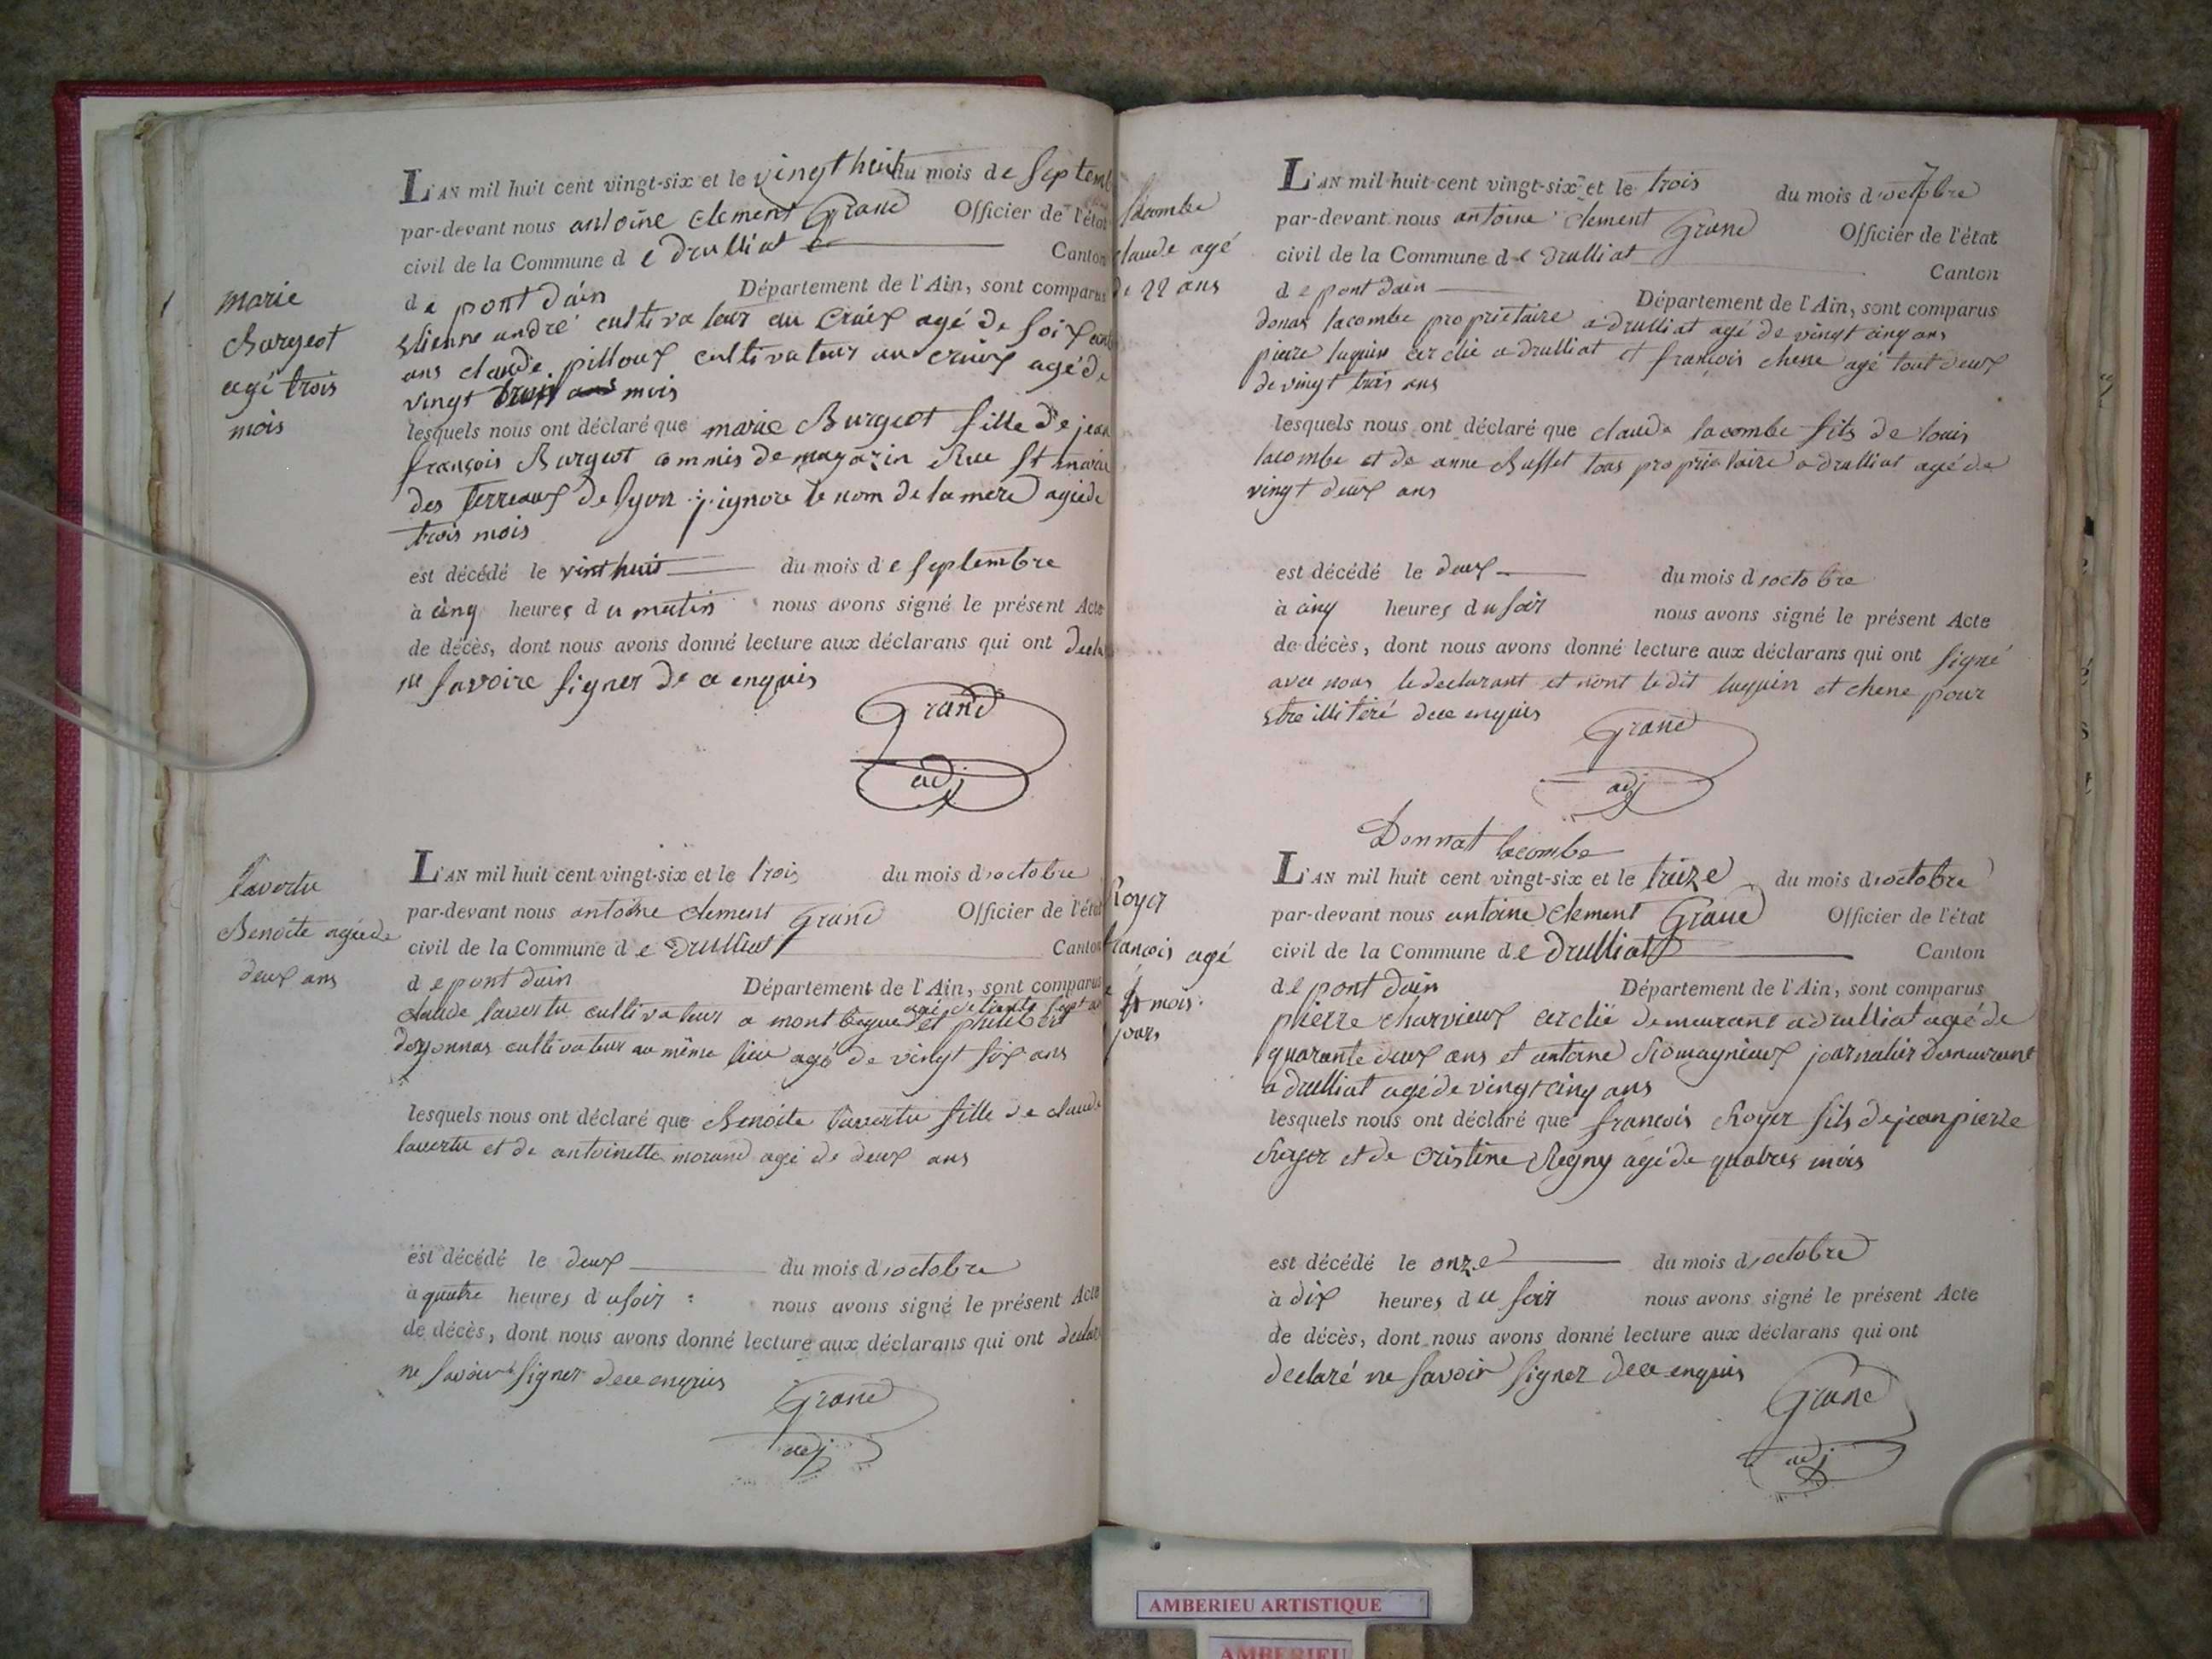 L'AN mil huit cent vingt-six et le vingt huit du mois de septemb
par-devant nous antoine clement Grand Officier de l'état
civil de la Commune de Drulliat Canton
de pont dain Département de l'Ain, sont comparus
marie
Burgeot
agé trois
mois
etienne andré cultivateur au Cruix agé de soixante
ans claude pilloux cultivateur au cruix agé de
vingt mois
lesquels nous ont déclaré que marie Burgeot fille de jean
françois Burgeot commis de magazin Rue St marie
des Terreaux de lyon j'ignore le nom de la mere agée de
trois mois
est décédé le vint huit du mois de septembre
à cinq heures du matin nous avons signé le présent Acte
de décès, dont nous avons donné lecture aux déclarans qui ont decla
ne savoire signer de ce enquis
Grand
adj
lavertu
Benoite agée de
deux ans
L'AN mil huit cent vingt-six et le trois du mois d'octobre
par-devant nous antoine clement Grand Officier de l'état
civil de la Commune de Drulliat Canton
de pont dain Département de l'Ain, sont comparus
agé de trente sept ans
claude lavertu cultivateur a et philibert
cultivateur au même lieu agé de vingt six ans
lesquels nous ont déclaré que Benoite lavertu fille de claude
lavertu et de antoinette morand agé de deux ans
est décédé le deux du mois d'octobre
à quatre heures du soir nous avons signé le présent Acte
de décès, dont nous avons donné lecture aux déclarans qui ont declar
ne savoir signer de ce enquis
Grand
adj
lacombe
claude agé
de 22 ans
L'AN mil huit cent vingt-six et le trois du mois d'octobre
par-devant nous antoine clement Grand Officier de l'état
civil de la Commune de Drulliat Canton
de pont dain Département de l'Ain, sont comparus
donat lacombe proprietaire a drulliat agé de vingt cinq ans
pierre luquin cerclié a drulliat et françois chene agé tout deux
de vingt trois ans
lesquels nous ont déclaré que claude lacombe fils de louis
lacombe et de anne Buffet tous proprietaire a drulliat agé de
vingt deux ans
est décédé le deux du mois d'octobre
à cinq heures du soir nous avons signé le présent Acte
de décès, dont nous avons donné lecture aux déclarans qui ont signé
avec nous le declarant et nont ledit luquin et chene pour
etre illitéré de ce enquis
Grand
adj
Donnat lacombe
Royer
francois agé
4 mois
jours
L'AN mil huit cent vingt-six et le treize du mois d'octobre
par-devant nous antoine clement Grand Officier de l'état
civil de la Commune de Drulliat Canton
de pont dain Département de l'Ain, sont comparus
pierre charvieux cerclié demeurant a drulliat agé de
quarante deux ans et antoine Romagnieux journalier demeurant
a drulliat agé de vingt cinq ans
lesquels nous ont déclaré que françois Royer fils de jean pierre
Royer et de cristine Regny agé de quatres mois
est décédé le onze du mois d'octobre
à dix heures du soir nous avons signé le présent Acte
de décès, dont nous avons donné lecture aux déclarans qui ont
declaré ne savoir signer de ce enquis
Grand
adj
AMBERIEU ARTISTIQUE
AMBERIEU